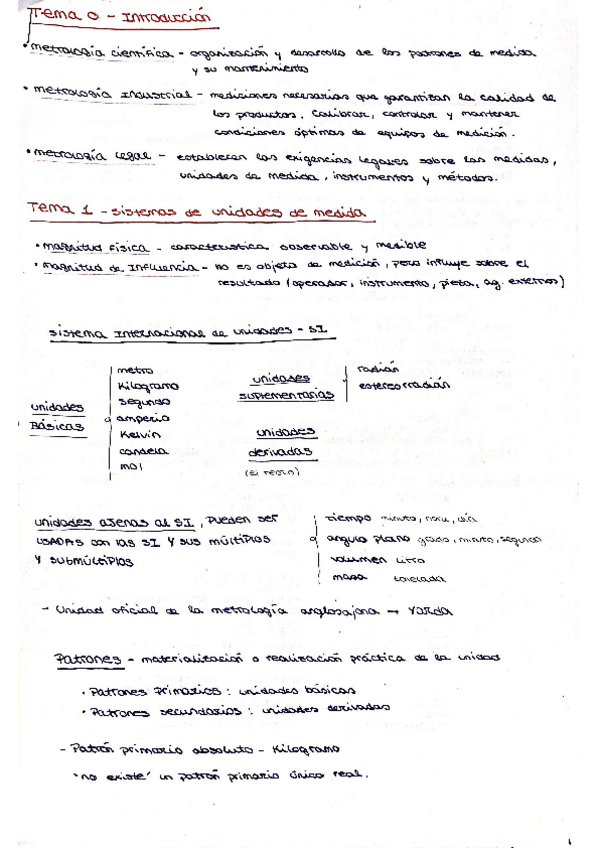 Tema 0 - Introducción
• Metrología científica - organización y desarrollo de los patrones de medida
y su mantenimiento
• Metrología Industrial - mediciones necesarias que garantizan la calidad de
los productos. Calibrar, controlar y mantener
condiciones óptimas de equipos de medición.
• Metrología Legal - establecen las exigencias legales sobre las medidas,
unidades de medida, instrumentos y métodos.
Tema 1 - Sistemas de unidades de medida
• Magnitud física - característica observable y medible
• Magnitud de Influencia - no es objeto de medición, pero influye sobre el
resultado (operador, instrumento, pieza, ag. externos)
Sistema Internacional de unidades - SI
unidades
Básicas
metro
Kilogramo
segundo
amperio
Kelvin
candela
mol
unidades
suplementarias
radián
estereorradián
unidades
derivadas
(el resto)
unidades ajenas al SI, pueden ser
USADAS con las SI Y sus múltiplos
Y submúltiplos
tiempo minuto, hora, día
angulo plano grado, minuto, segundo
volumen litro
masa tonelada
- Unidad oficial de la metrología anglosajona → Yarda
Patrones - materialización o realización práctica de la unidad
• Patrones Primarios: unidades básicas
• Patrones secundarios: unidades derivadas
- Patrón primario absoluto - Kilogramo
'no existe' un patrón primario único real.